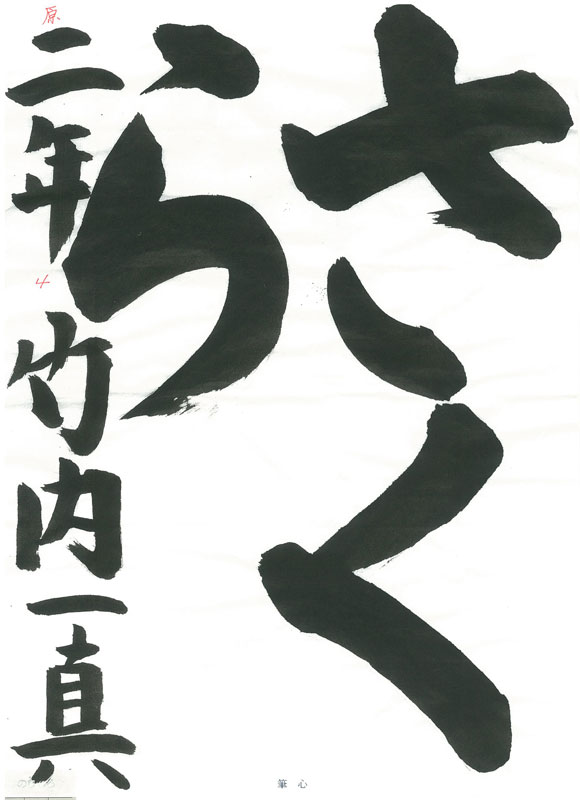 さくら
二年竹内一真
原
4
筆心